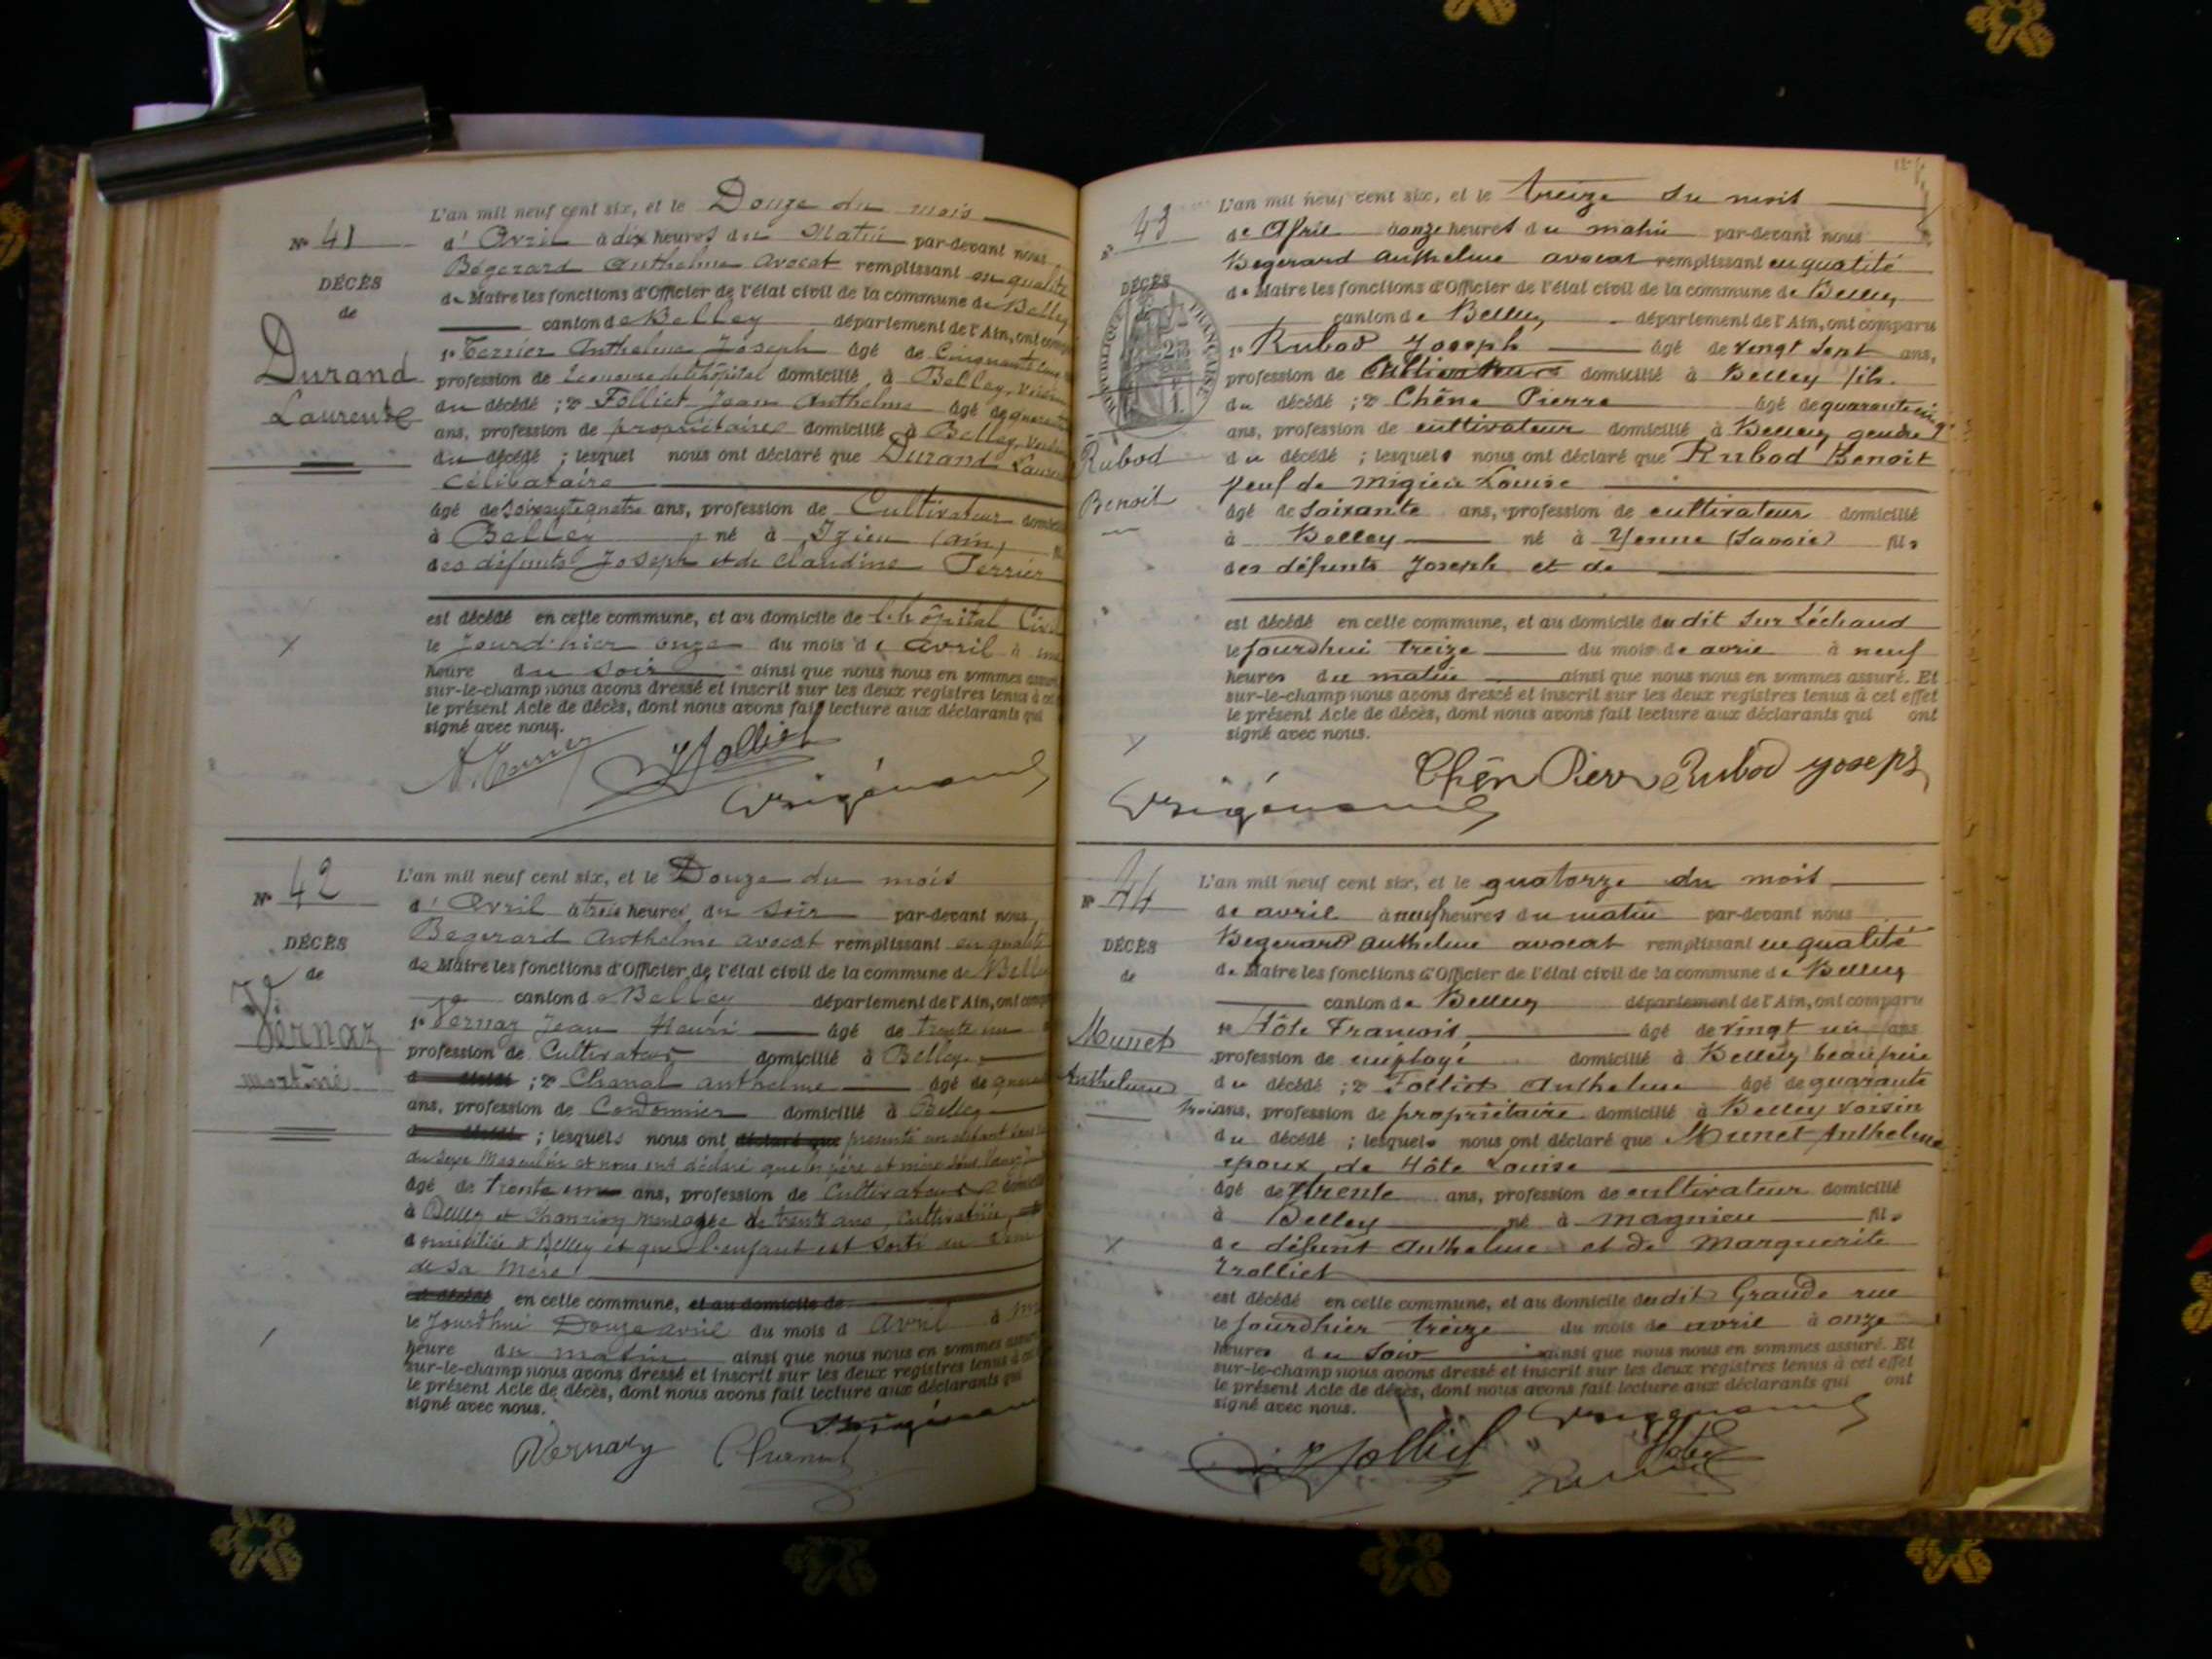 L'an mil neuf cent six, et le Douze du mois
Nº 41
d'Avril à dix heures du Matin par-devant nous
Bégerard Anthelme Avocat remplissant en qualité
DÉCÈS
de Maire les fonctions d'Officier de l'état civil de la commune de Belley
de
canton de Belley département de l'Ain, ont comp
1º Terrier Anthelme Joseph âgé de Cinquante
Durand
profession de Econome de l'hôpital domicilié à Belley, voisin
Laurent
du décédé ; 2º Folliet Jean Anthelme âgé de quarante
ans, profession de propriétaire domicilié à Belley, voisin
du décédé ; lesquel nous ont déclaré que Durand Laurent
Célibataire
âgé de soixante quatre ans, profession de Cultivateur domicilié
à Belley né à Izieu (Ain) fil
des défunts Joseph et de Claudine Terrier
est décédé en cette commune, et au domicile de l'hôpital Civil
le Jourd'hier onze du mois de avril à une
heure du soir ainsi que nous nous en sommes assuré
sur-le-champ nous avons dressé et inscrit sur les deux registres tenus à cet
le présent Acte de décès, dont nous avons fait lecture aux déclarants qui
signé avec nous.
Folliet
Nº 42
L'an mil neuf cent six, et le Douze du mois
d'Avril à trois heures du soir par-devant nous
Bégerard Anthelme avocat remplissant en qualité
DÉCÈS
de Maire les fonctions d'Officier de l'état civil de la commune de Belley
de
canton de Belley département de l'Ain, ont comp
Vernaz
1º Vernaz Jean Henri âgé de trente un
mort né
profession de Cultivateur domicilié à Belley
; 2º Chanal Anthelme âgé de
ans, profession de Cordonnier domicilié à Belley
; lesquels nous ont déclaré que présenté un enfant
du sexe Masculin et nous ont déclaré que les père et mère sont
âgé de trente un ans, profession de Cultivateur domicilié
à Belley et ménagère de trente ans, cultivatrice,
domiciliée à Belley et que l'enfant est sorti du sein
de sa Mère
en cette commune, et au domicile de
le Jourd'hui Douze avril du mois d Avril à
heure du matin ainsi que nous nous en sommes assuré
sur-le-champ nous avons dressé et inscrit sur les deux registres tenus à cet
le présent Acte de décès, dont nous avons fait lecture aux déclarants qui
signé avec nous.
Vernaz
L'an mil neuf cent six, et le treize du mois
Nº 43
de Avril à onze heures du matin par-devant nous
Begerard Anthelme avocat remplissant en qualité
DÉCÈS
de Maire les fonctions d'Officier de l'état civil de la commune de Belley
RÉPUBLIQUE FRANÇAISE
canton de Belley département de l'Ain, ont comparu
1º Rubod Joseph âgé de vingt sept ans,
profession de Cultivateur domicilié à Belley fils
du décédé ; 2º Chêne Pierre âgé de quarante cinq
ans, profession de cultivateur domicilié à Belley gendre
Rubod
du décédé ; lesquels nous ont déclaré que Rubod Benoit
Benoit
Veuf de Migieu Louise
âgé de Soixante ans, profession de cultivateur domicilié
à Belley né à Yenne (Savoie) fils
des défunts Joseph et de
est décédé en cette commune, et au domicile du dit Sur Léchaud
le jourdhui treize du mois de avril à neuf
heures du matin ainsi que nous nous en sommes assuré. Et
sur-le-champ nous avons dressé et inscrit sur les deux registres tenus à cet effet
le présent Acte de décès, dont nous avons fait lecture aux déclarants qui ont
signé avec nous.
Chên Pierre Rubod Joseph
Nº 44
L'an mil neuf cent six, et le quatorze du mois
de avril à neuf heures du matin par-devant nous
Begerard Anthelme avocat remplissant en qualité
DÉCÈS
de Maire les fonctions d'Officier de l'état civil de la commune de Belley
de
canton de Belley département de l'Ain, ont comparu
Munet
1º Hôte François âgé de vingt un ans
profession de employé domicilié à Belley beau frère
Anthelme
du décédé ; 2º Folliet Anthelme âgé de quarante
trois ans, profession de propriétaire domicilié à Belley voisin
du décédé ; lesquels nous ont déclaré que Munet Anthelme
époux de Hôte Louise
âgé de trente ans, profession de cultivateur domicilié
à Belley né à Magnieu fils
de défunt Anthelme et de Marguerite
Trolliet
est décédé en cette commune, et au domicile du dit Grande rue
le jourdhier treize du mois de avril à onze
heures du soir ainsi que nous nous en sommes assuré. Et
sur-le-champ nous avons dressé et inscrit sur les deux registres tenus à cet effet
le présent Acte de décès, dont nous avons fait lecture aux déclarants qui ont
signé avec nous.
Folliet Hôte